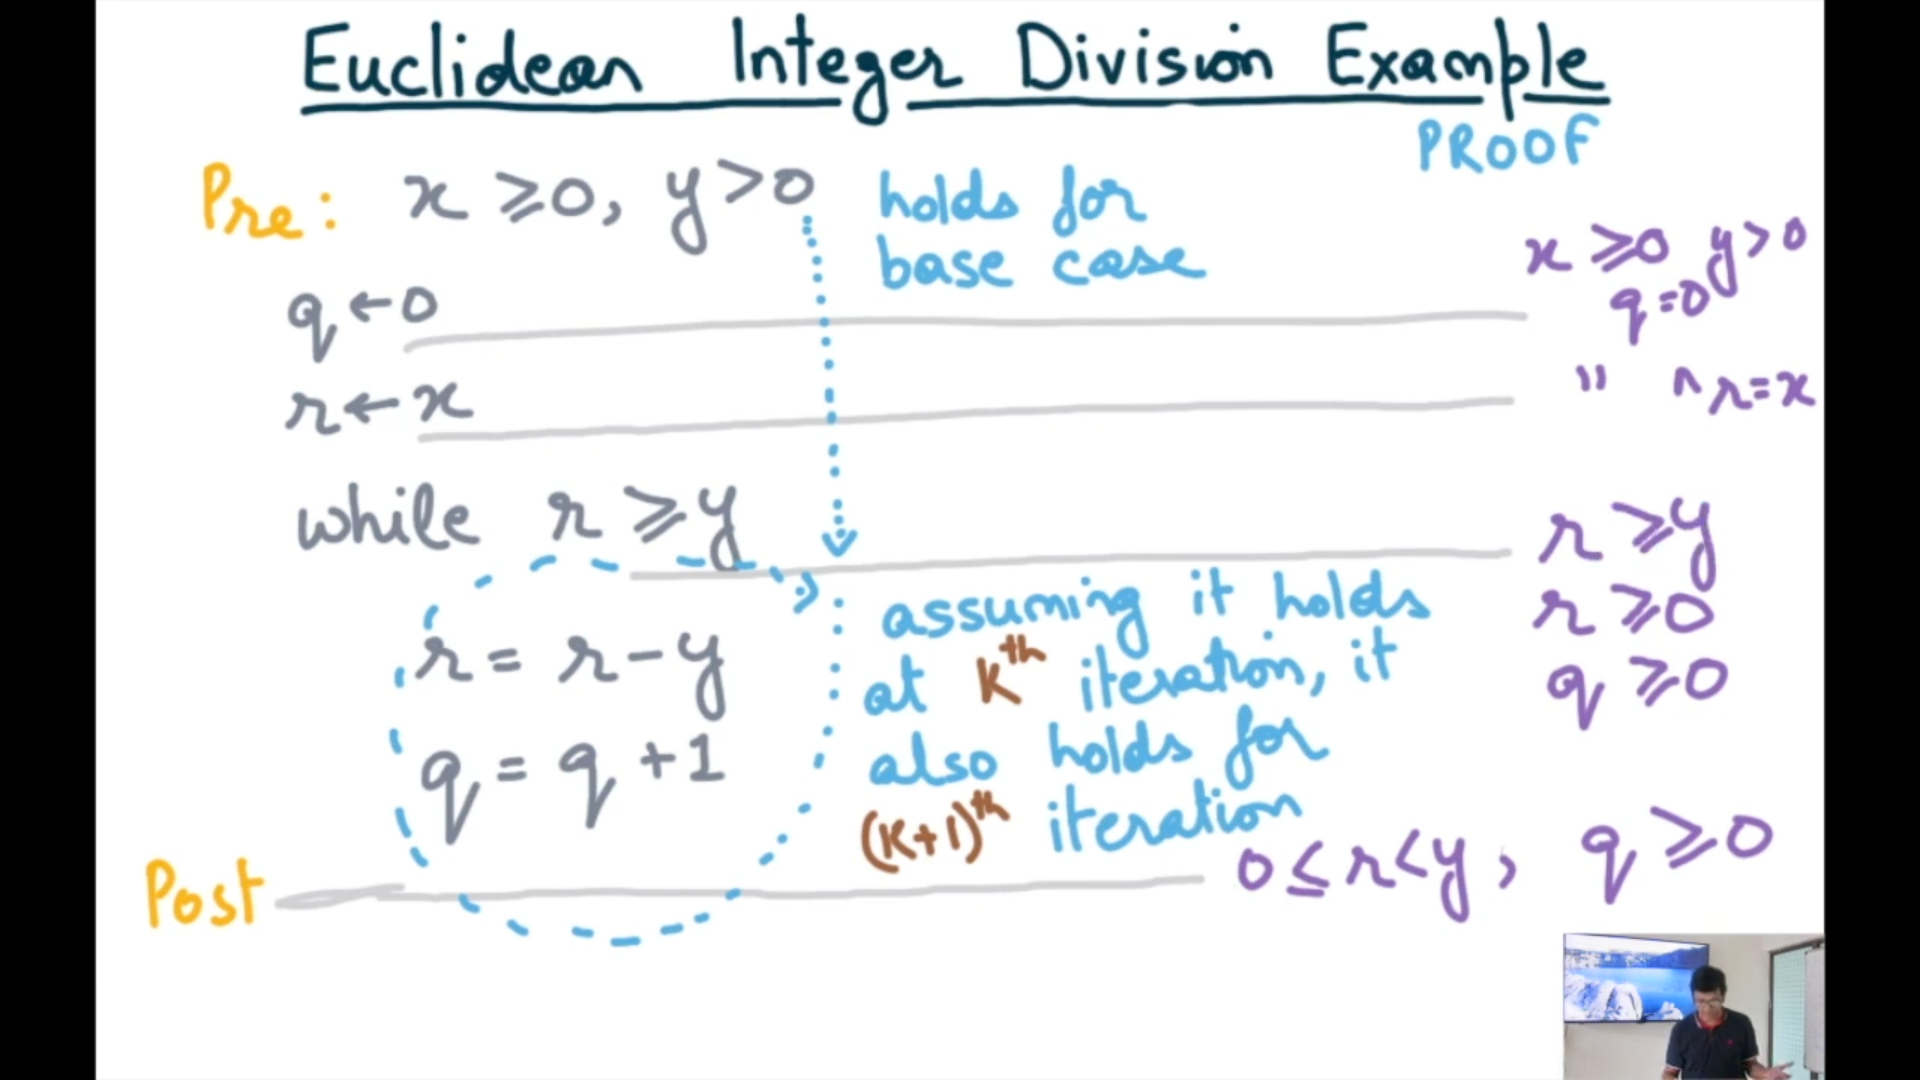 Euclidean Integer Division Example
PROOF
Pre: x ⩾ 0, y > 0
holds for
base case
x ⩾ 0 y > 0
q = 0
q ← 0
r ← x
" ^ r = x
while r ⩾ y
r ⩾ y
r ⩾ 0
q ⩾ 0
r = r - y
q = q + 1
assuming it holds
at Kth iteration, it
also holds for
(K+1)th iteration
Post
0 ≤ r < y, q ⩾ 0